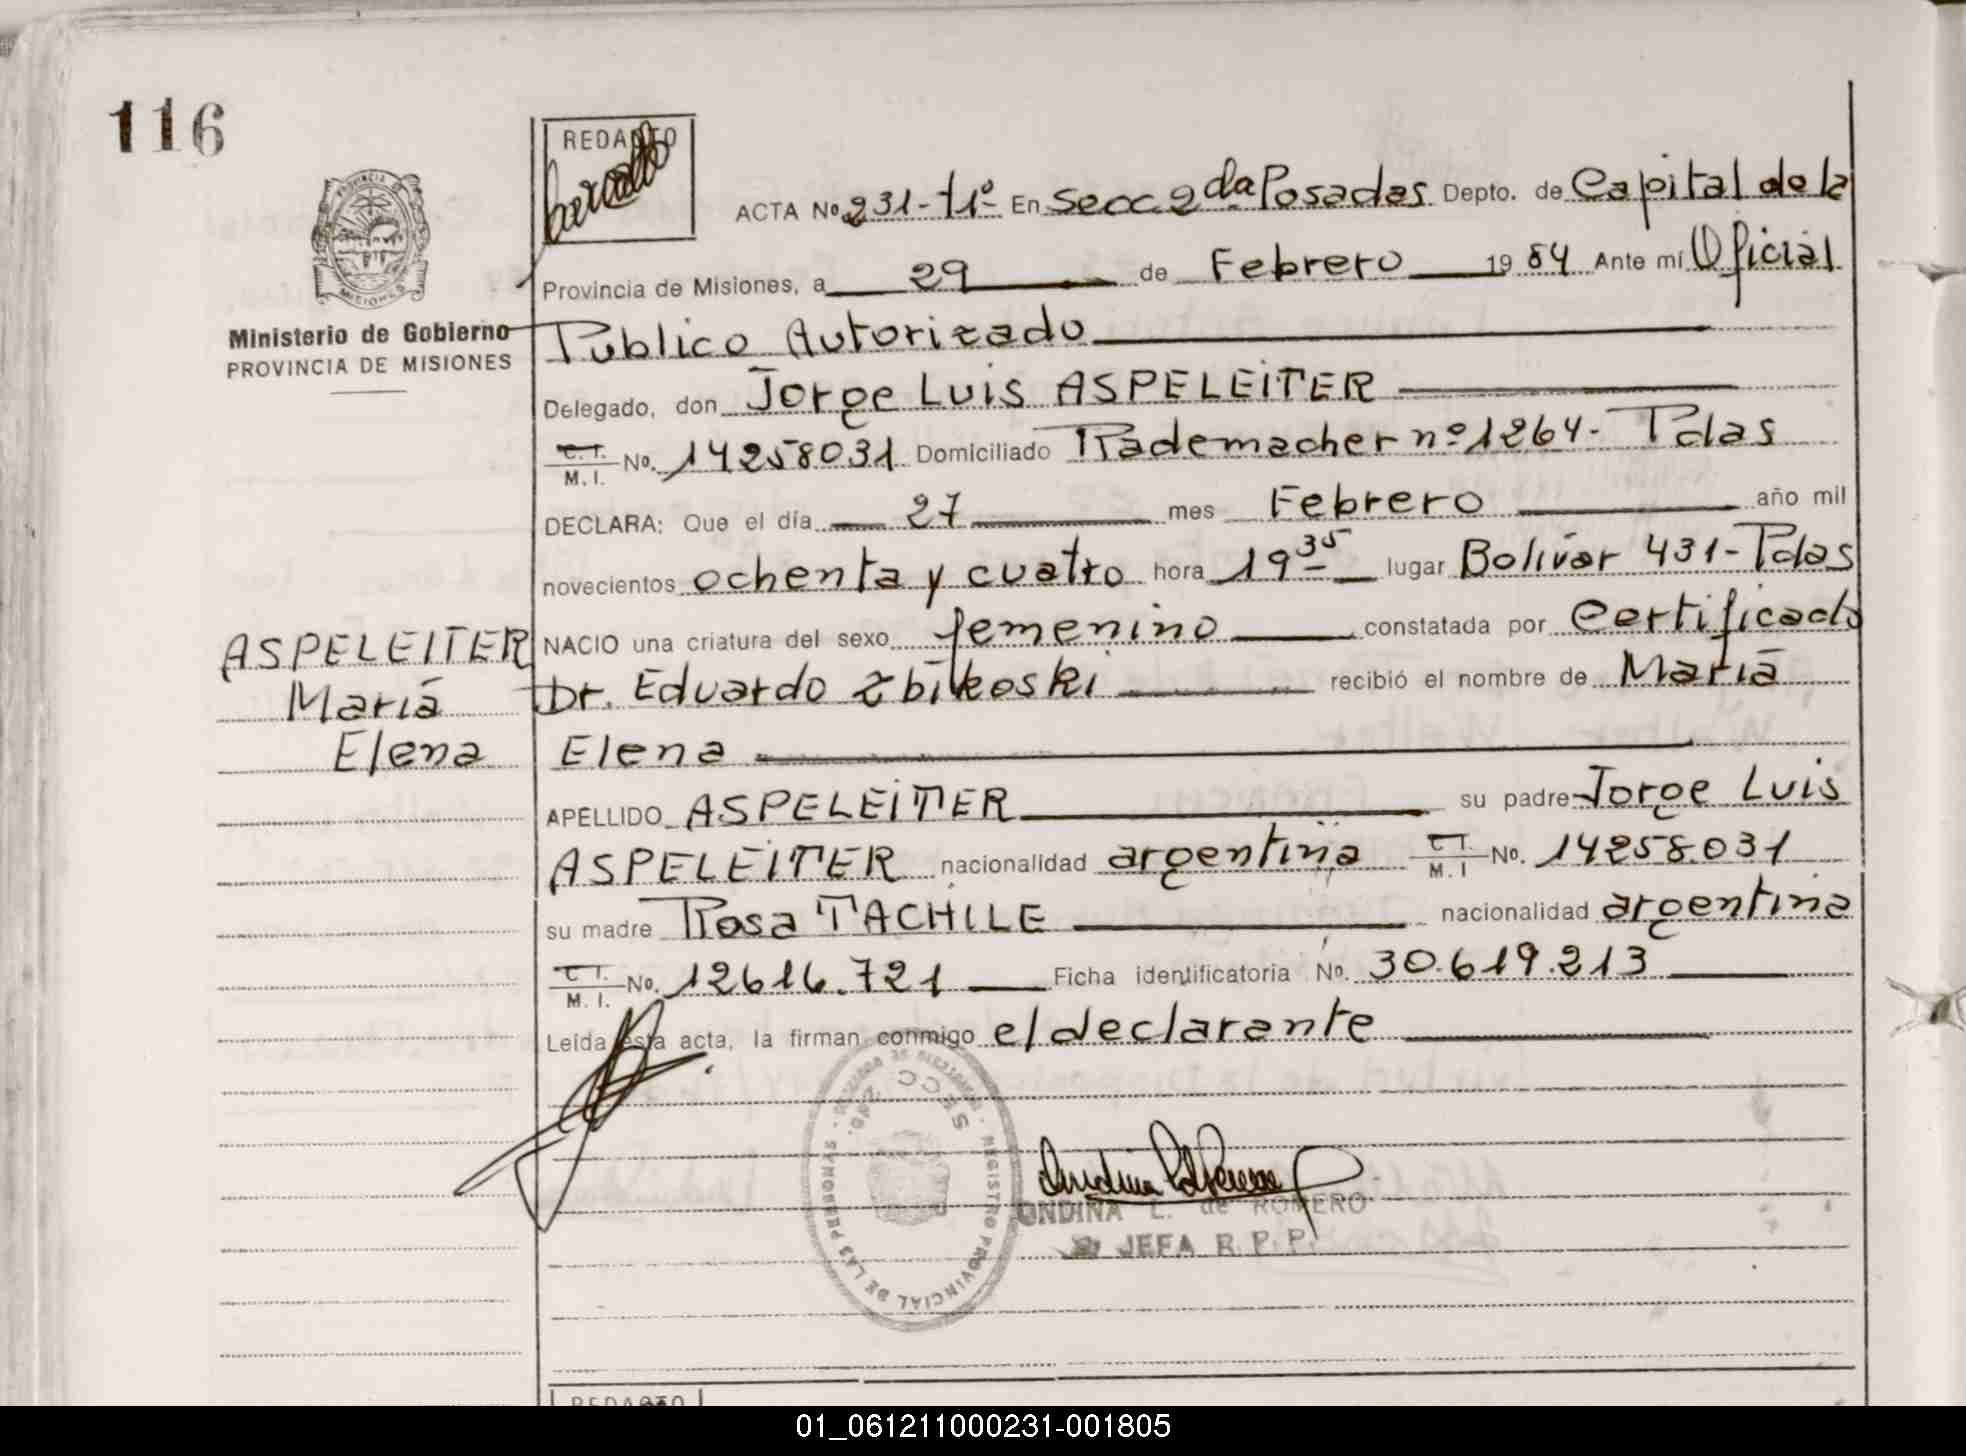 116
REDACTO
PROVINCIA DE
MISIONES
Ministerio de Gobierno
PROVINCIA DE MISIONES
ACTA No. 231-t1º- En Secc. 2da Posadas Depto. de Capital de la
Provincia de Misiones, a 29 de Febrero 1984 Ante mí Oficial
Publico Autorizado
Delegado, don Jorge Luis ASPELEITER
C.I. M.I. No. 14258031 Domiciliado Rademacher nº 1264- Pdas
DECLARA: Que el día 27 mes Febrero año mil
novecientos ochenta y cuatro hora 19 35 lugar Bolívar 431-Pdas
NACIO una criatura del sexo femenino constatada por Certificado
Dr. Eduardo Zbikoski recibió el nombre de María
Elena
APELLIDO ASPELEITER su padre Jorge Luis
ASPELEITER nacionalidad argentina C.I. M.I No. 14258.031
su madre Rosa TACHILE nacionalidad argentina
C.I. M.I. No. 12616.721 Ficha identificatoria No. 30.619.213
Leída esta acta, la firman conmigo el declarante
ASPELEITER
María
Elena
SECC 2da.
REGISTRO PROVINCIAL DE LAS PERSONAS
ONDINA L. de ROMERO
JEFA R.P.P.
REDACTO
01_061211000231-001805